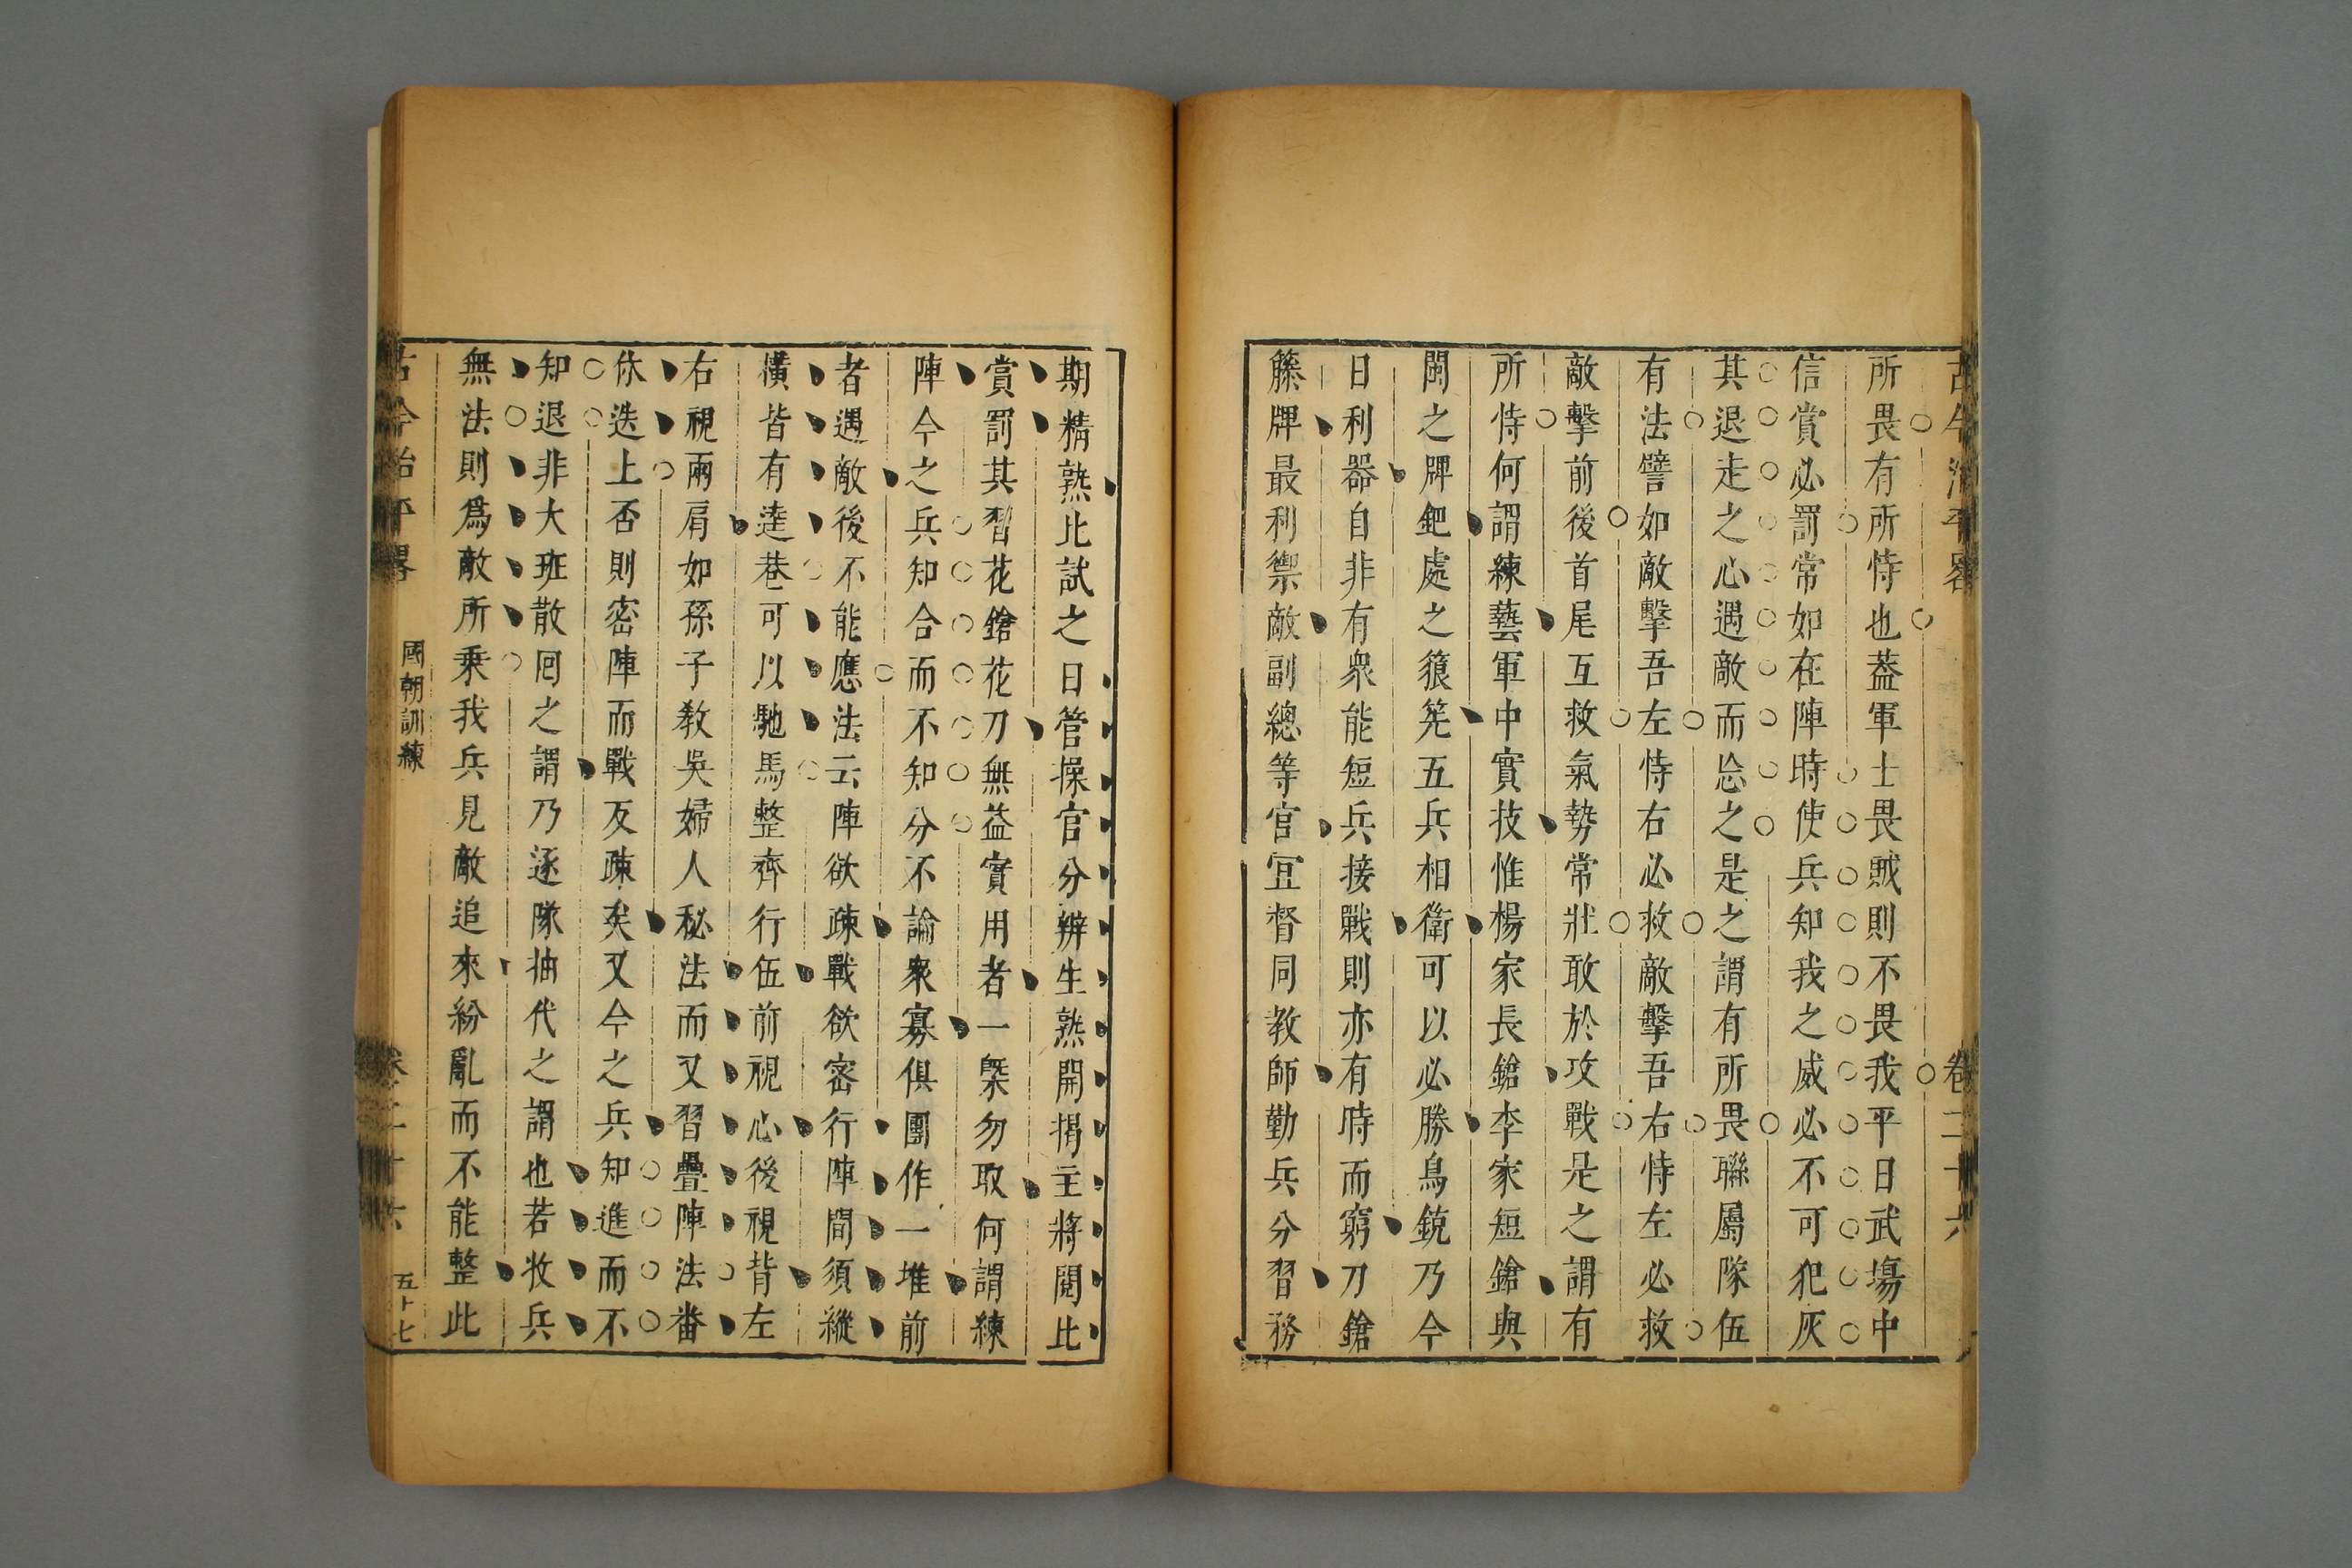 古今治平畧 卷二十六
所畏有所恃也葢軍士畏賊則不畏我平日武塲中
信賞必罰常如在陣時使兵知我之威必不可犯灰
其退走之心遇敵而忘之是之謂有所畏聯屬隊伍
有法譬如敵擊吾左恃右必救敵擊吾右恃左必救
敵擊前後首尾互救氣勢常壯敢於攻戰是之謂有
所恃何謂練藝軍中實技惟楊家長鎗李家短鎗與
閩之牌鈀處之狼筅五兵相衛可以必勝鳥銃乃今
日利器自非有衆能短兵接戰則亦有時而窮刀鎗
籐牌最利禦敵副總等官冝督同教師勤兵分習務
期精熟比試之日管操官分辨生熟開揭主將閱此
賞罰其習花鎗花刀無益實用者一槩勿取何謂練
陣今之兵知合而不知分不論衆寡俱團作一堆前
者遇敵後不能應法云陣欲疎戰欲密行陣間須縱
橫皆有逵巷可以馳馬整齊行伍前視心後視背左
右視兩肩如孫子教吳婦人秘法而又習疊陣法番
休迭上否則密陣而戰反疎矣又今之兵知進而不
知退非大班散囘之謂乃逐隊抽代之謂也若收兵
無法則爲敵所乘我兵見敵追來紛亂而不能整此
古今治平畧 國朝訓練 卷二十六 五十七